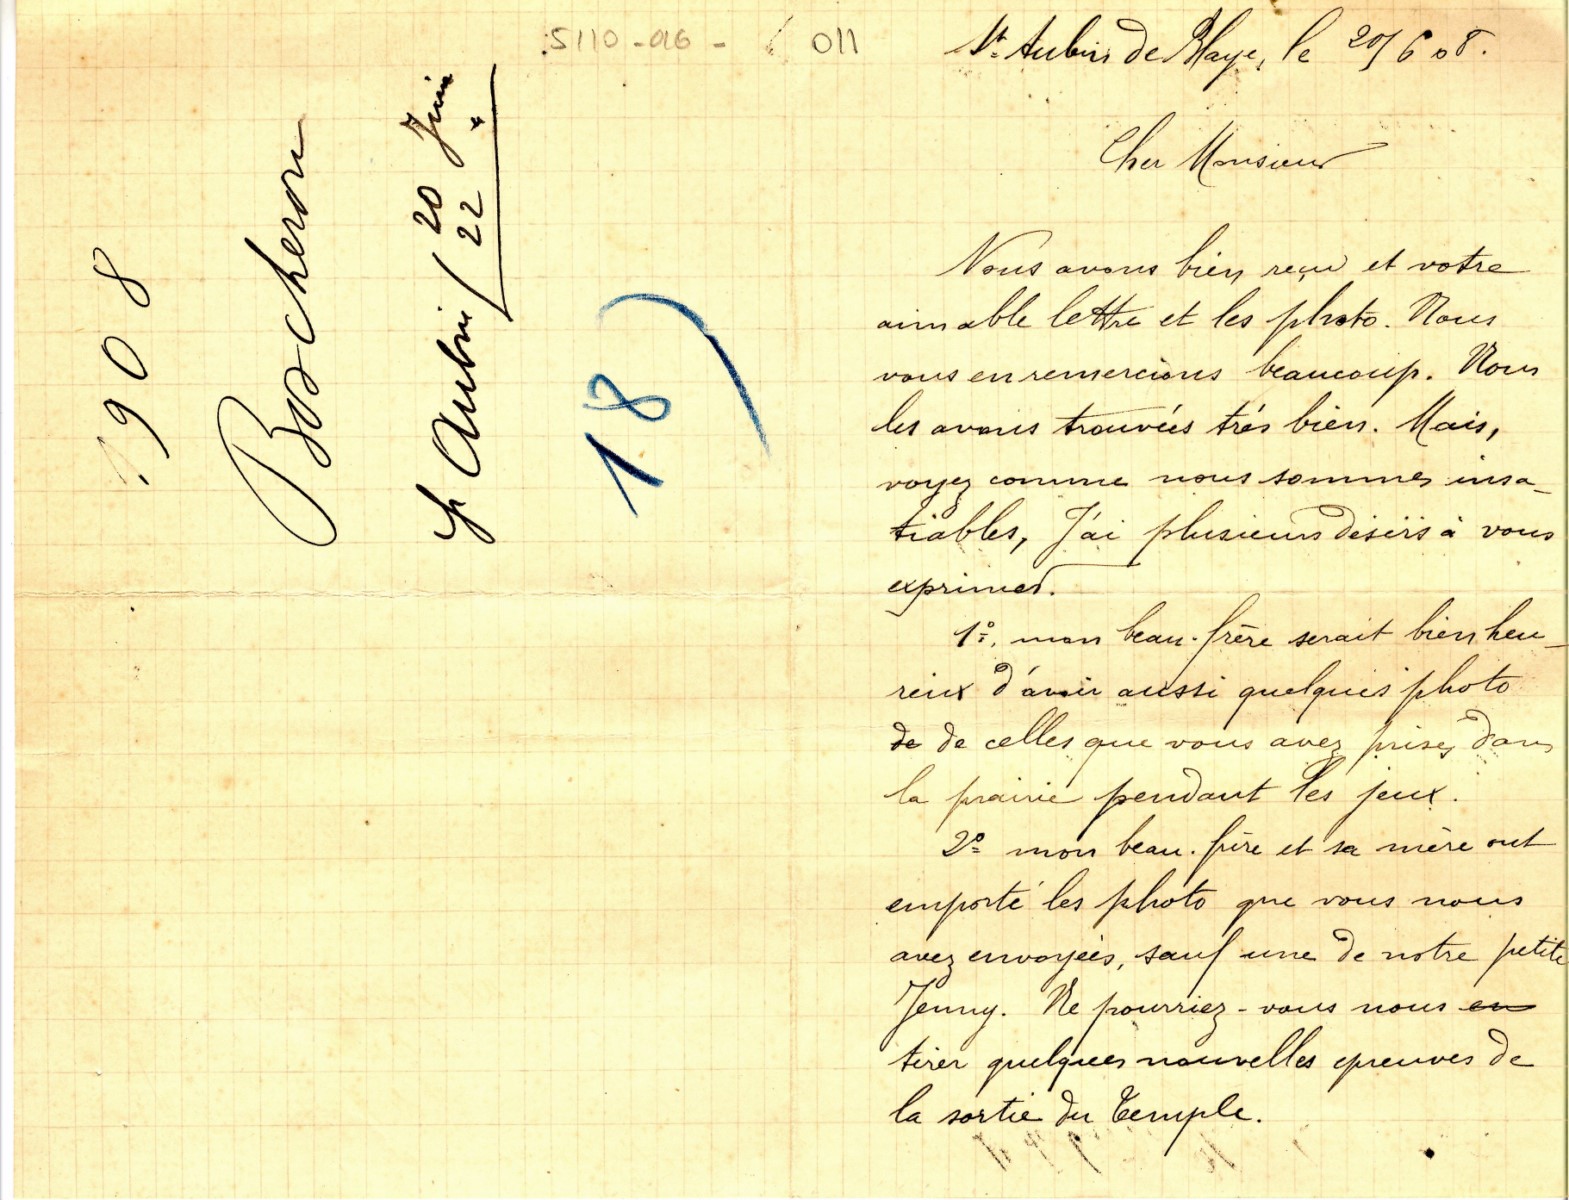 5110-a6- 011
1908
Boscheron
St Aubin / 20 Juin
22 "
18)
St Aubin de Blaye, le 20/6 08.
Cher Monsieur
Nous avons bien reçu et votre
aimable lettre et les photo. Nous
vous en remercions beaucoup. Nous
les avons trouvées très bien. Mais,
voyez comme nous sommes insa-
tiables, J'ai plusieurs désirs à vous
exprimer.
1°. mon beau-frère serait bien heu-
reux d'avoir aussi quelques photo
de de celles que vous avez prises dans
la prairie pendant les jeux.
2° mon beau-frère et sa mère ont
emporté les photo que vous nous
avez envoyées, sauf une de notre petite
Jenny. Ne pourriez-vous nous en
tirer quelques nouvelles epreuves de
la sortie du Temple.